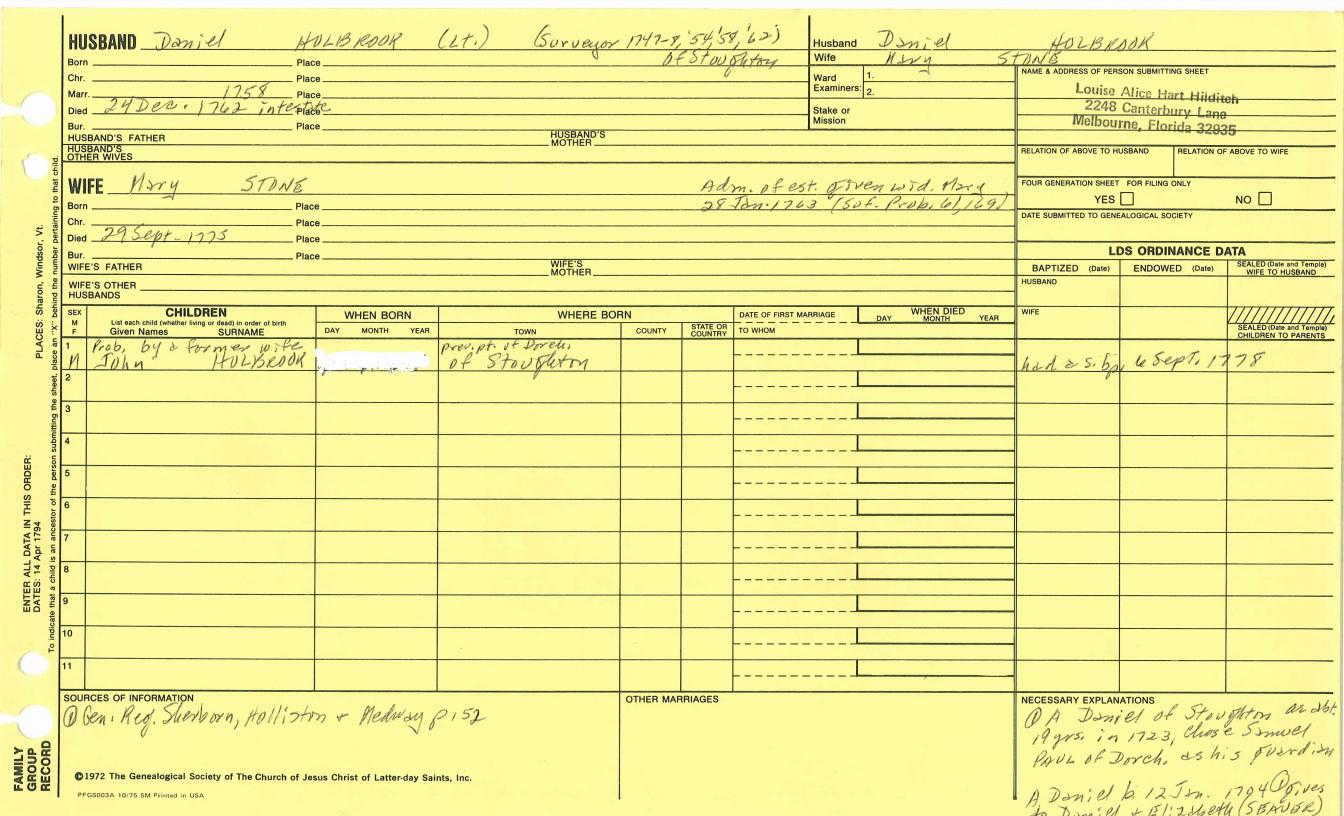 HUSBAND Daniel HOLBROOK (Lt.) (Surveyor 1747-8, '54, '58, '62)
Born Place of Stoughton
Chr. Place
Marr. 1758 Place
Died 24 Dec. 1762 intestate Place
Bur. Place
HUSBAND'S FATHER HUSBAND'S MOTHER
HUSBAND'S OTHER WIVES
Husband Daniel HOLBROOK
Wife Mary STONE
Ward Examiners: 1.
2.
Stake or Mission
NAME & ADDRESS OF PERSON SUBMITTING SHEET
Louise Alice Hart Hilditch
2248 Canterbury Lane
Melbourne, Florida 32935
RELATION OF ABOVE TO HUSBAND RELATION OF ABOVE TO WIFE
FOUR GENERATION SHEET FOR FILING ONLY
YES NO
DATE SUBMITTED TO GENEALOGICAL SOCIETY
WIFE Mary STONE Adm. of est. given wid. Mary
Born Place 28 Jan. 1763 (Suf. Prob. 61, 169)
Chr. Place
Died 29 Sept. 1775 Place
Bur. Place
WIFE'S FATHER WIFE'S MOTHER
WIFE'S OTHER HUSBANDS
LDS ORDINANCE DATA
BAPTIZED (Date) ENDOWED (Date) SEALED (Date and Temple) WIFE TO HUSBAND
HUSBAND
WIFE
SEALED (Date and Temple) CHILDREN TO PARENTS
SEX M F
CHILDREN
List each child (whether living or dead) in order of birth
Given Names SURNAME
WHEN BORN
DAY MONTH YEAR
WHERE BORN
TOWN COUNTY STATE OR COUNTRY
DATE OF FIRST MARRIAGE
TO WHOM
WHEN DIED
DAY MONTH YEAR
1 Prob. by a former wife prev. pt. of Dorch.
M John HOLBROOK of Stoughton had a s. bp. 6 Sept. 1778
2
3
4
5
6
7
8
9
10
11
SOURCES OF INFORMATION
① Gen. Reg. Sherborn, Holliston & Medway p 152
©1972 The Genealogical Society of The Church of Jesus Christ of Latter-day Saints, Inc.
PFGS003A 10/75 5M Printed in USA
OTHER MARRIAGES
NECESSARY EXPLANATIONS
① A Daniel of Stoughton ae abt.
19 yrs. in 1723, chose Samuel
PAUL of Dorch. as his guardian
A Daniel b 12 Jan. 1704 ① gives
to Daniel & Elizabeth (SEAVER)
FAMILY GROUP RECORD
ENTER ALL DATA IN THIS ORDER:
DATES: 14 Apr 1794
PLACES: Sharon, Windsor, Vt.
To indicate that a child is an ancestor of the person submitting the sheet, place an "X" behind the number pertaining to that child.